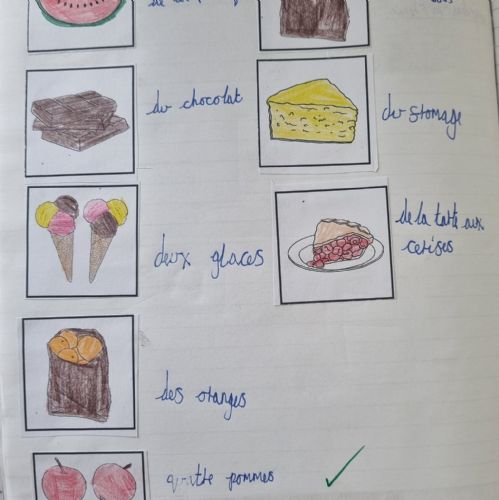 du chocolat
du fromage
deux glaces
de la tarte aux
cerises
des oranges
quatre pommes